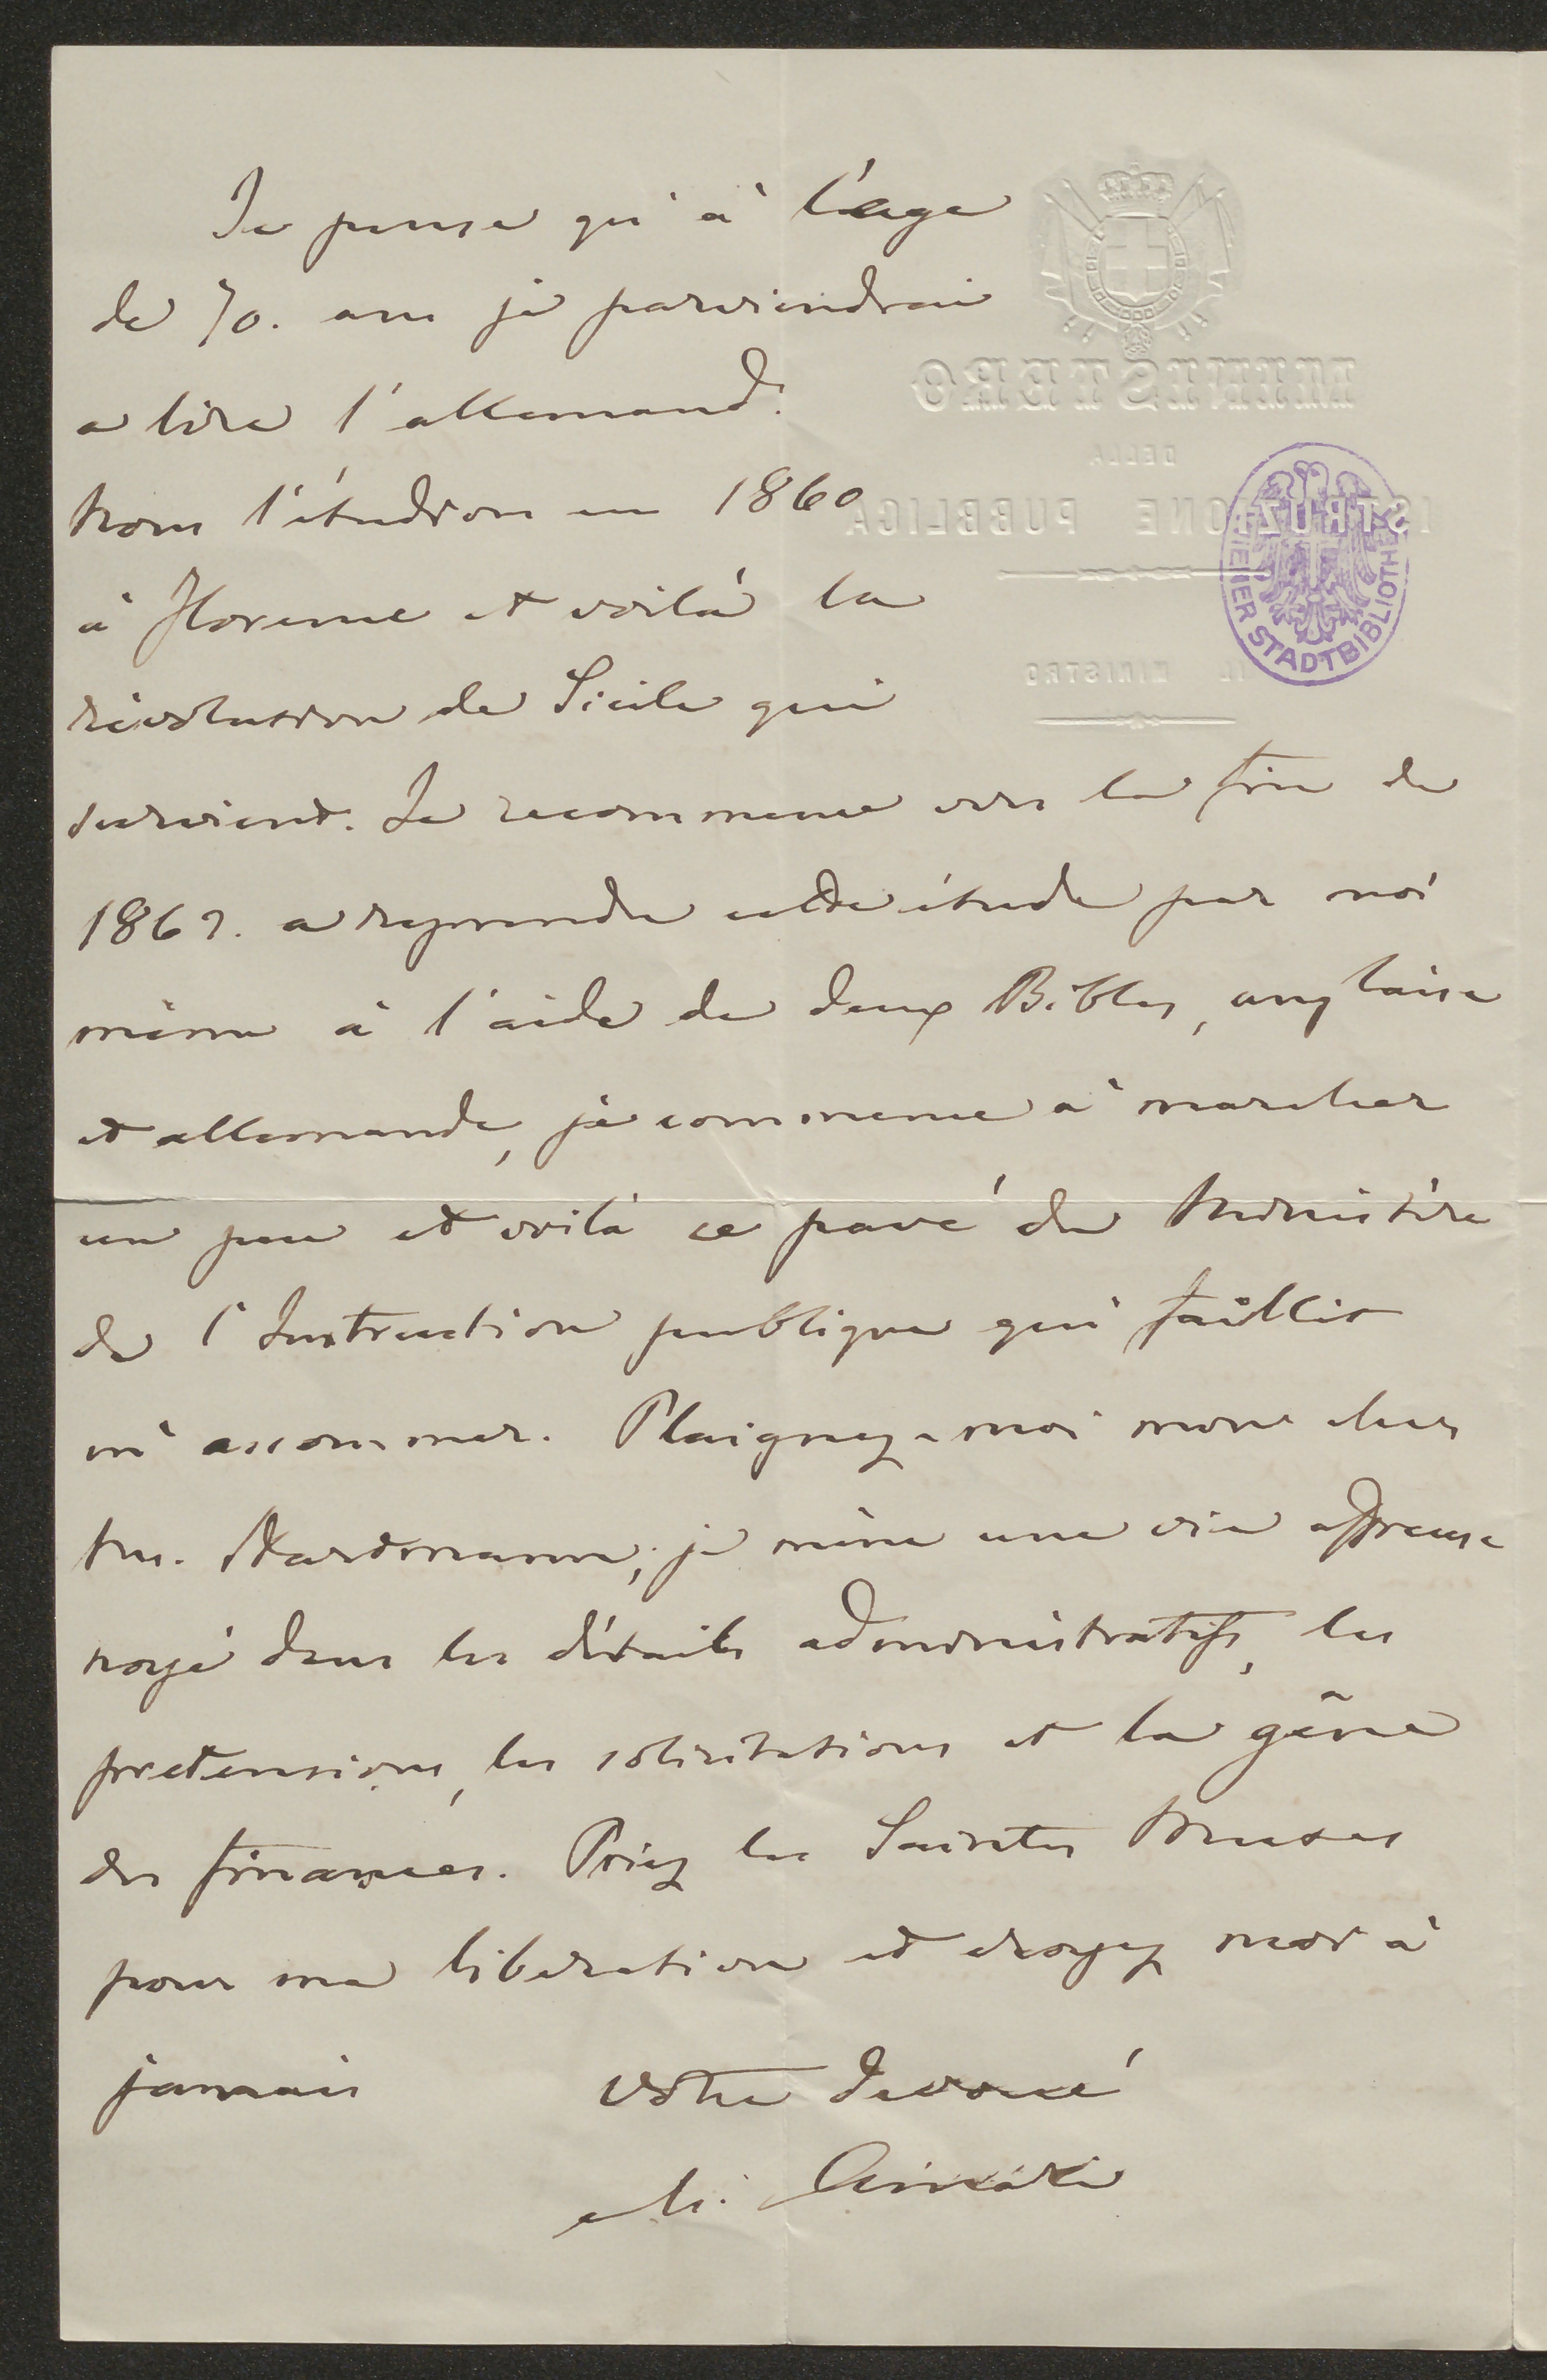 Je pense qu'à l'age
de 70. ans je parviendrai
a lire l'allemand.
Nous l'étudions en 1860
à Florence et voilà la
révolution de Sicile qui
survient. Je recommence vers la fin de
1862. a reprendre cette étude par moi
même à l'aide de deux Bibles, anglaise
et allemande, je commence à marcher
un peu et voilà ce pavé du Ministère
de l'Instruction publique qui faillit
m'assommer. Plaignez-moi mon cher
M. Hartmann; je mène une vie affreuse
noyé dans les détails administratifs, les
pretensions, les solicitations et la gêne
des finances. Priez les Saintes Muses
pour ma liberation et croyez moi à
jamais votre devoué
M. Amari
MINISTERO
DELLA
ISTRUZIONE PUBBLICA
IL MINISTRO
WIENER STADTBIBLIOTHEK